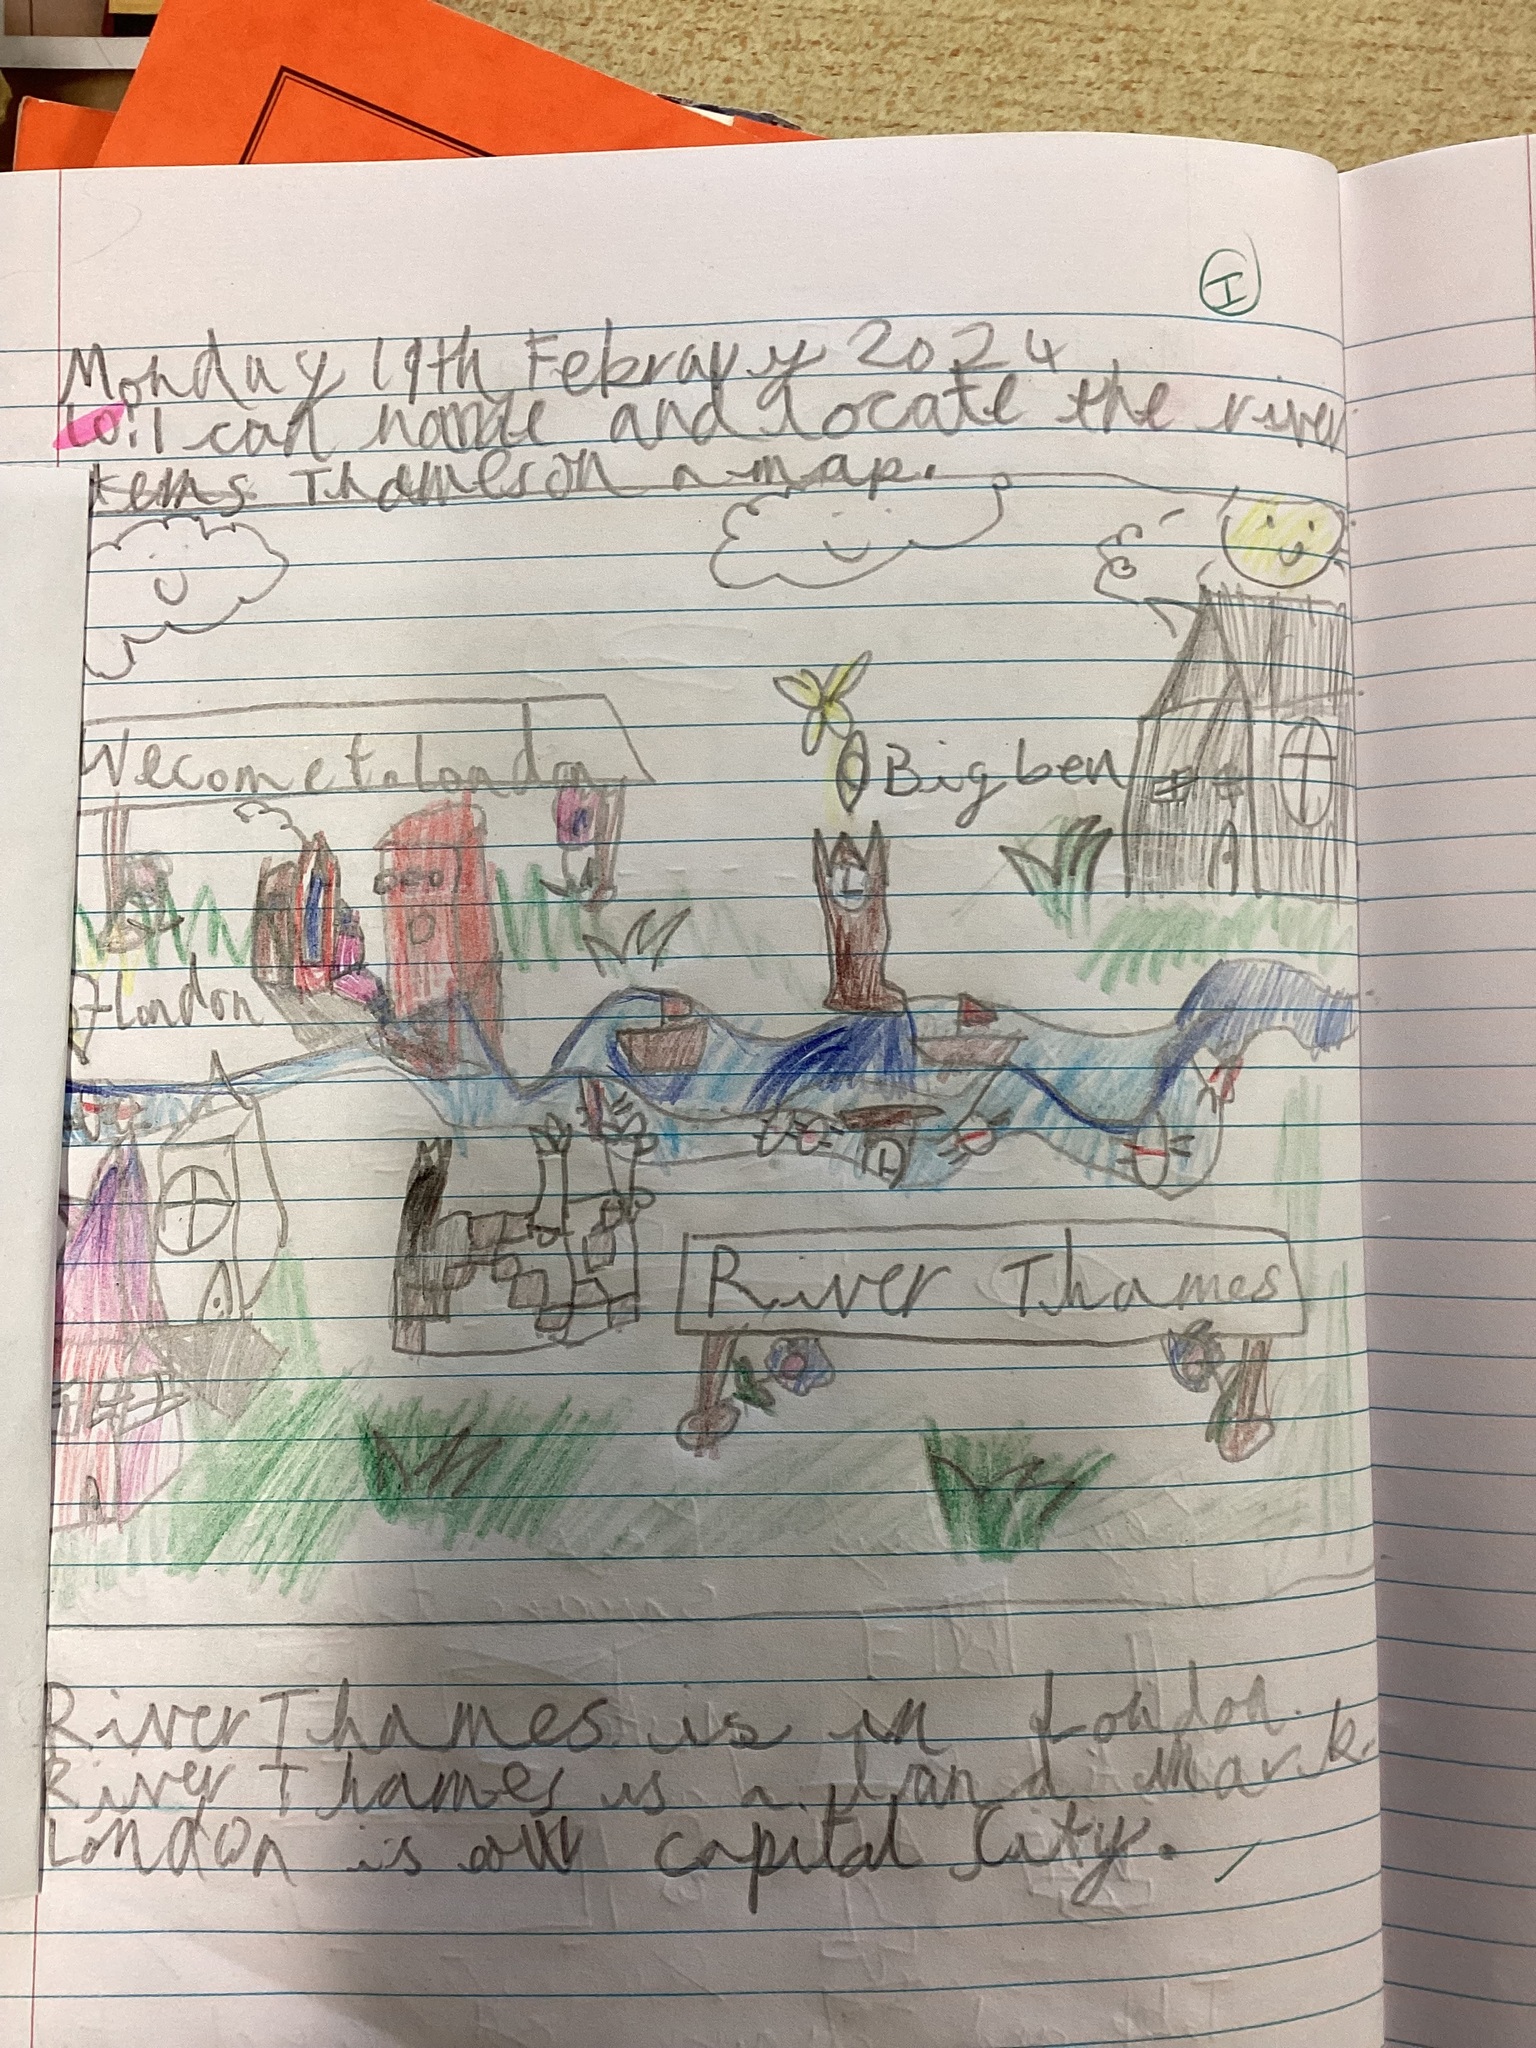 I
Monday 19th Febraray 2024
Wil can name and locate the river
tems Thames on a map.
Wecome to london
Big ben
of london
River Thames
River Thames is in London.
River Thames is a landmark.
London is our capital City.